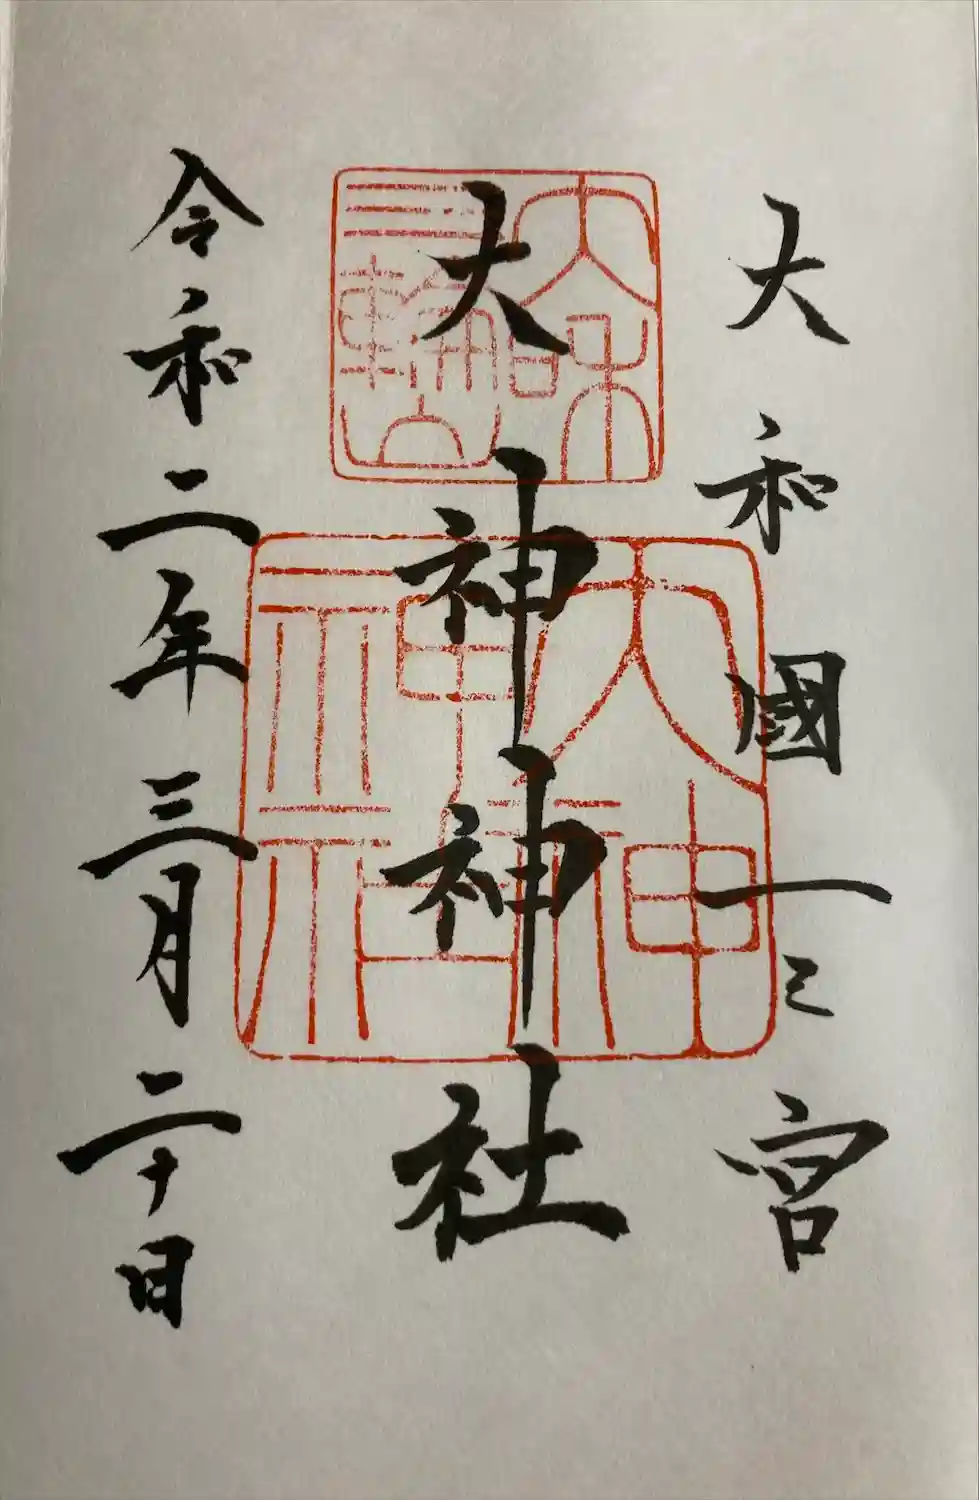 大和國一之宮
大神神社
令和二年三月二十日
大神神社